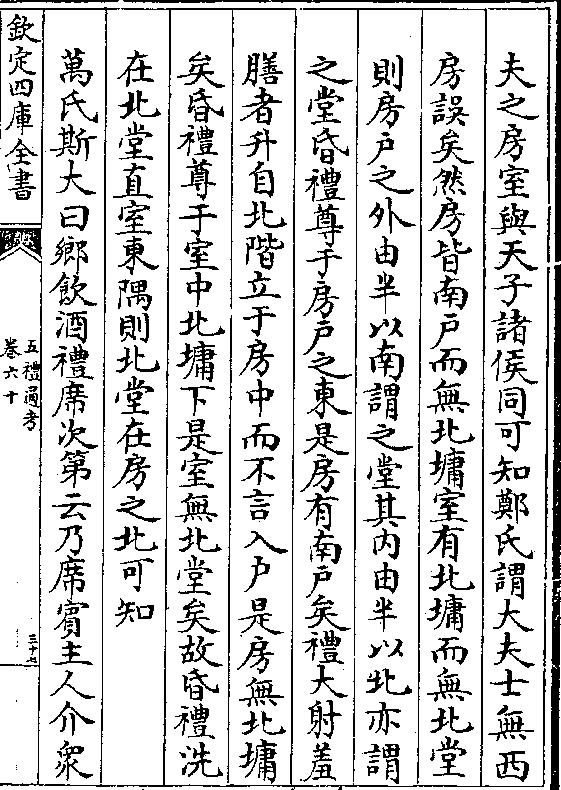 夫之房室與天子諸侯同可知鄭氏謂大夫士無西
房誤矣然房皆南户而無北墉室有北墉而無北堂
則房户之外由半以南謂之堂其内由半以北亦謂
之堂昏禮尊于房户之東是房有南户矣禮大射羞
膳者升自北階立于房中而不言入户是房無北墉
矣昏禮尊于室中北墉下是室無北堂矣故昏禮洗
在北堂直室東隅則北堂在房之北可知
萬氏斯大曰鄉飲酒禮席次第云乃席賓主人介衆
欽定四庫全書
五禮通考
卷六十
三十七